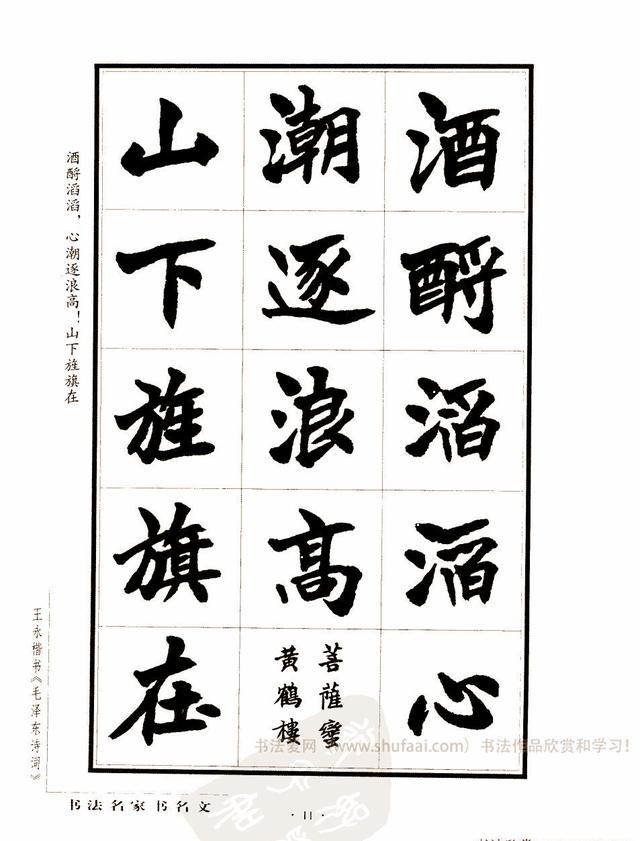 酒酹滔滔心
潮逐浪高
菩薩蠻
黄鶴樓
山下旌旗在
酒酹滔滔，心潮逐浪高！山下旌旗在
王永楷书《毛泽东诗词》
书法名家书名文
·11·
书法爱网（www.shufaai.com）书法作品欣赏和学习！